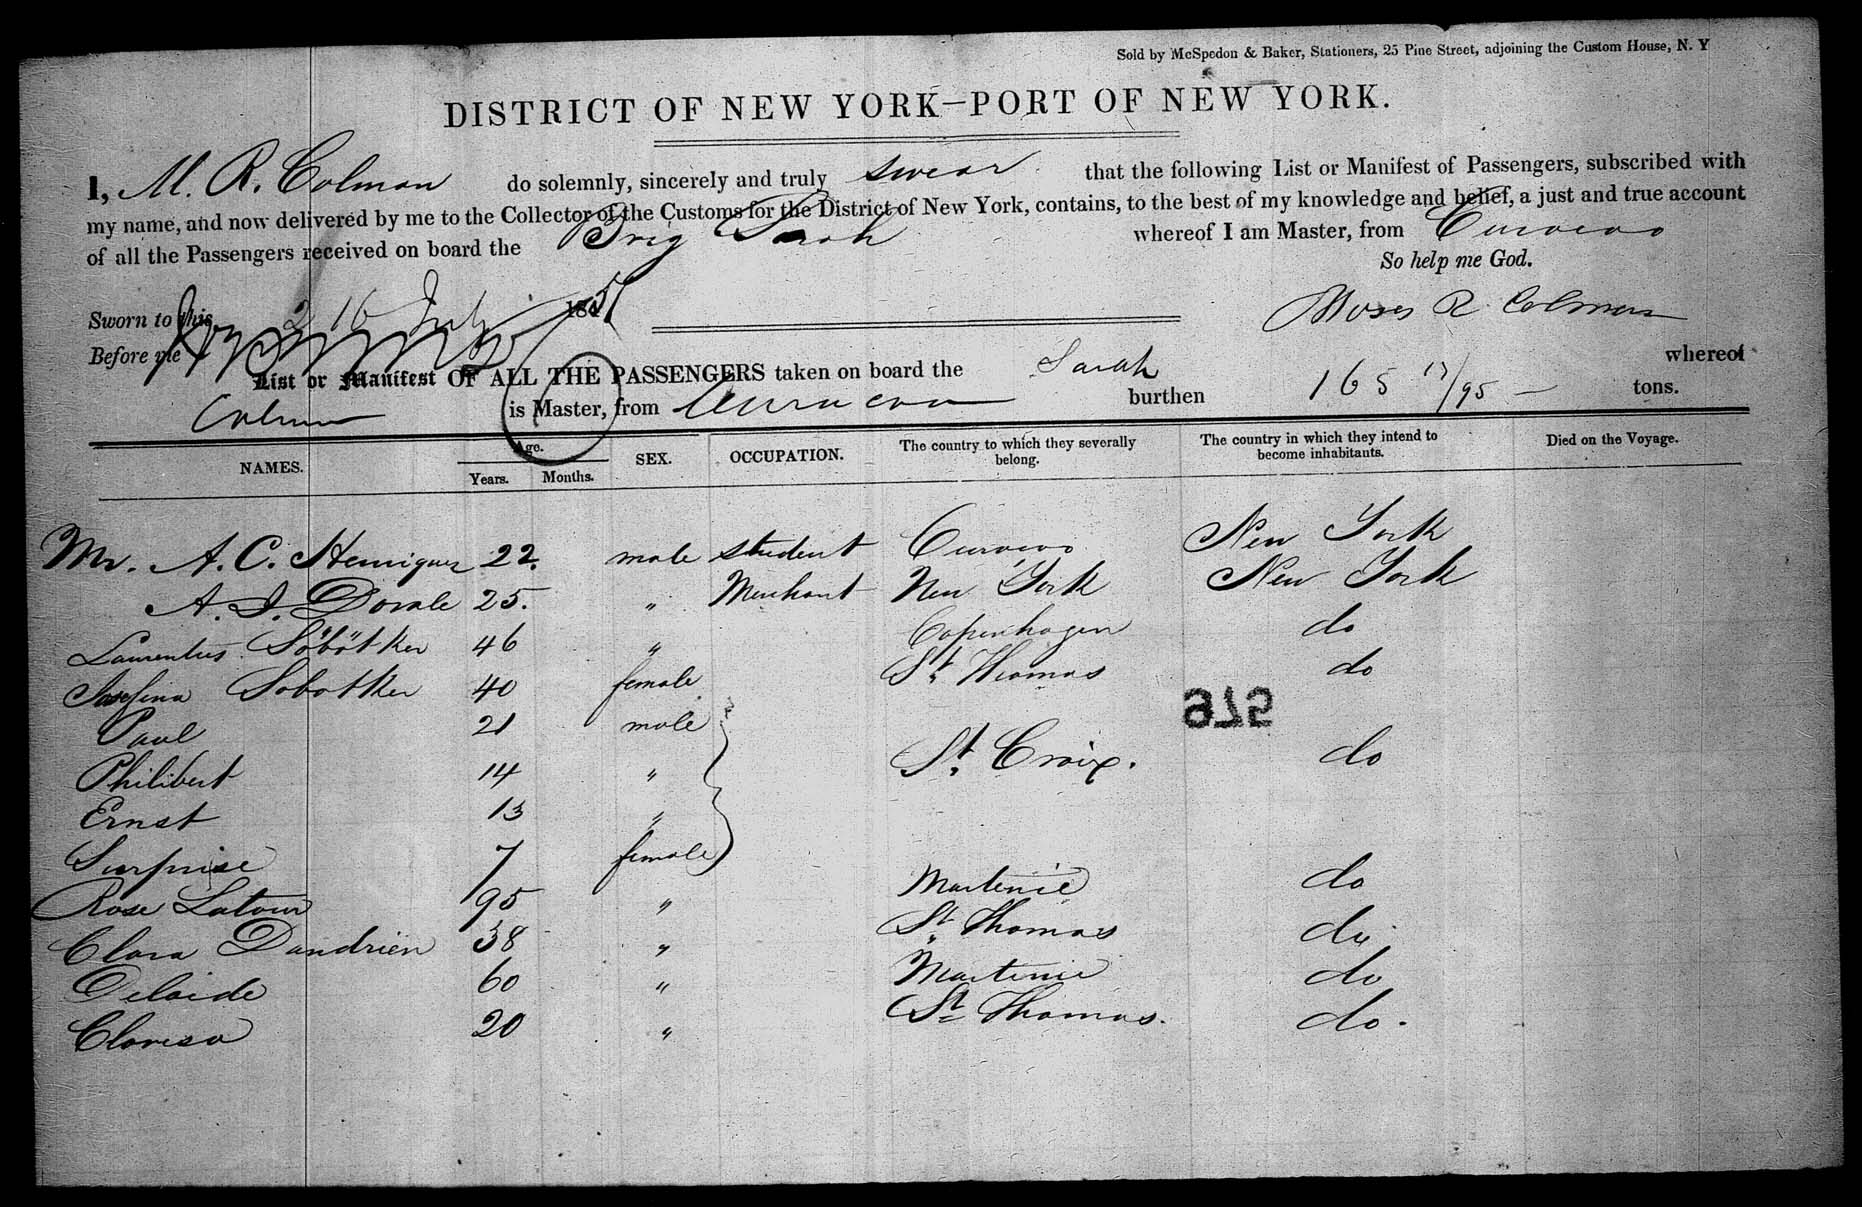 Sold by McSpedon & Baker, Stationers, 25 Pine Street, adjoining the Custom House, N. Y
DISTRICT OF NEW YORK—PORT OF NEW YORK.
I, M. R. Colman do solemnly, sincerely and truly swear that the following List or Manifest of Passengers, subscribed with
my name, and now delivered by me to the Collector of the Customs for the District of New York, contains, to the best of my knowledge and belief, a just and true account
of all the Passengers received on board the Brig Sarah whereof I am Master, from Curacao
So help me God.
Sworn to this 16 July 185
Moses R Colman
Before me
List or Manifest OF ALL THE PASSENGERS taken on board the Sarah whereof
Colman is Master, from Curacao burthen 165 17/95 tons.
NAMES. Age. Years. Months. SEX. OCCUPATION. The country to which they severally belong. The country in which they intend to become inhabitants. Died on the Voyage.
Mr. A. C. Henriquez 22. male student Curacao New York
A. J. Dovale 25. " Merchant New York New York
Laurentius Söbötker 46 " Copenhagen do
Josefina Sobotker 40 female St Thomas do
Paul 21 male
575
Philibert 14 " St. Croix. do
Ernst 13 "
Surprise 7 female
Rose Latour 95 " Martenic do
Clara Dandrien 38 " St Thomas do
Delaide 60 " Martenic do
Claresa 20 " St Thomas. do.